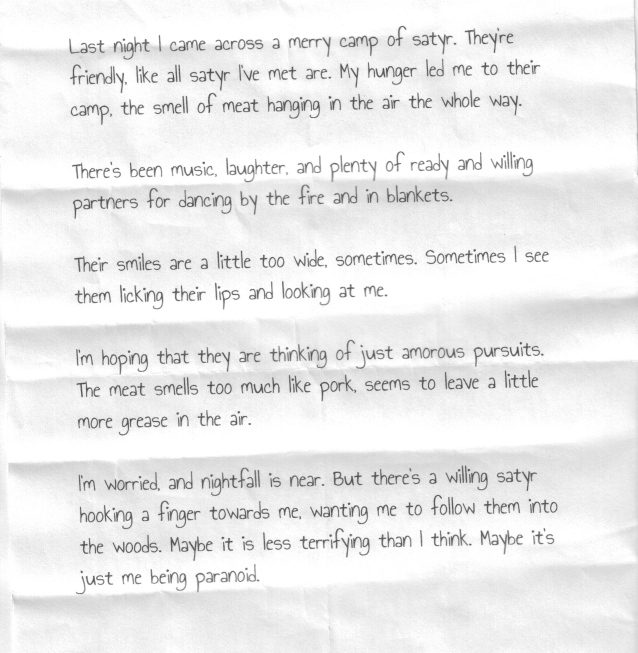 Last night I came across a merry camp of satyr. They're
friendly, like all satyr I've met are. My hunger led me to their
camp, the smell of meat hanging in the air the whole way.
There's been music, laughter, and plenty of ready and willing
partners for dancing by the fire and in blankets.
Their smiles are a little too wide, sometimes. Sometimes I see
them licking their lips and looking at me.
I'm hoping that they are thinking of just amorous pursuits.
The meat smells too much like pork, seems to leave a little
more grease in the air.
I'm worried, and nightfall is near. But there's a willing satyr
hooking a finger towards me, wanting me to follow them into
the woods. Maybe it is less terrifying than I think. Maybe it's
just me being paranoid.